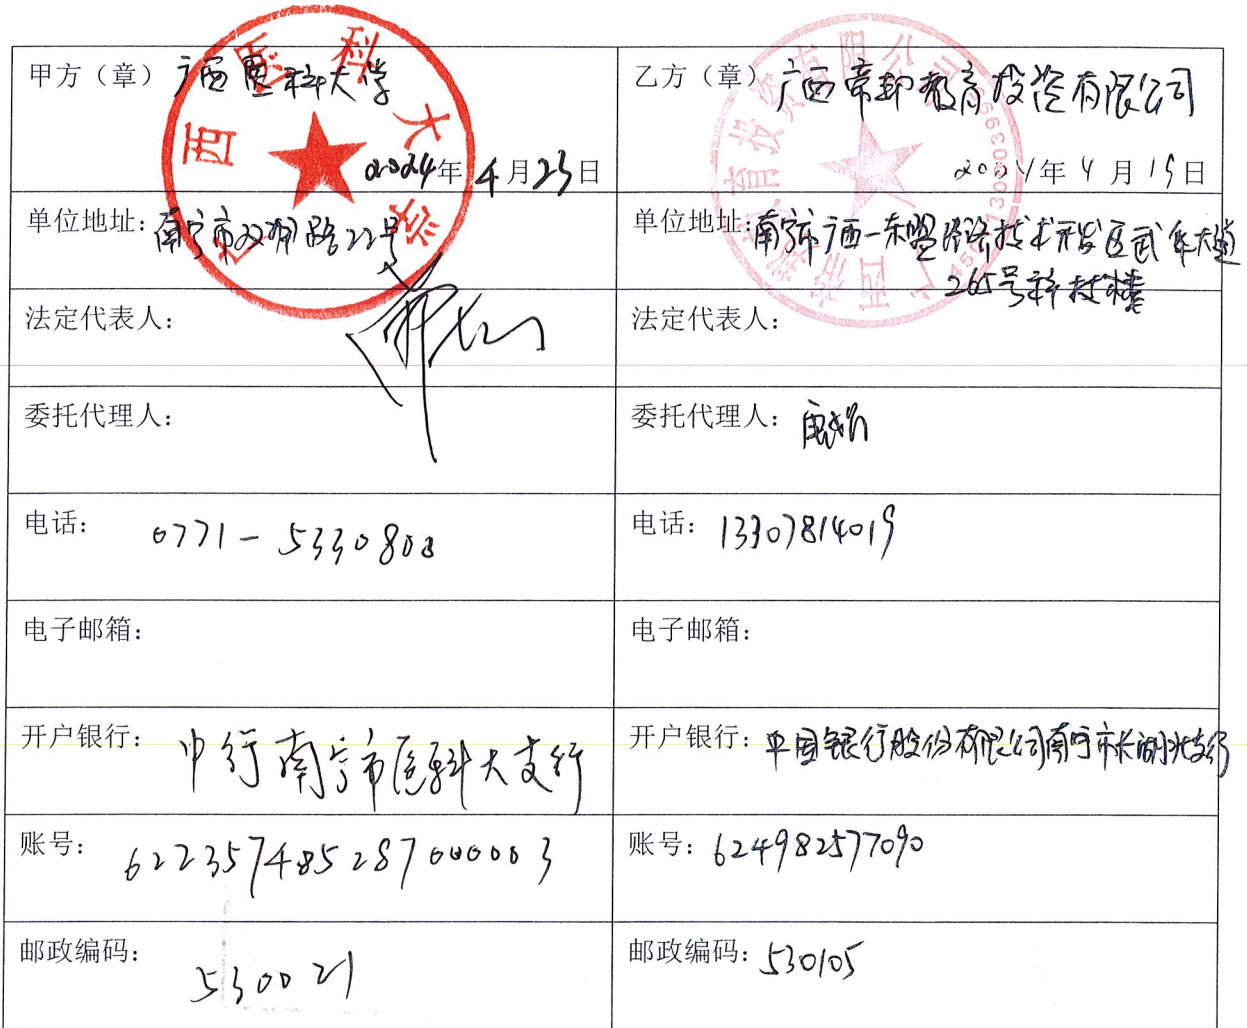 甲方（章） 广西医科大学
2024年 4月23日
乙方（章） 广西帝邦教育投资有限公司
2024年 4月19日
单位地址：南宁市双拥路22号
单位地址：南宁市广西一东盟经济技术开发区武华大道
265号科技楼
法定代表人：
法定代表人：
委托代理人：
委托代理人：
电话： 0771-5330808
电话：13307814019
电子邮箱：
电子邮箱：
开户银行： 中行南宁市医科大支行
开户银行：中国银行股份有限公司南宁市长湖北支行
账号： 622357485287000003
账号：624982577090
邮政编码： 530021
邮政编码：530105